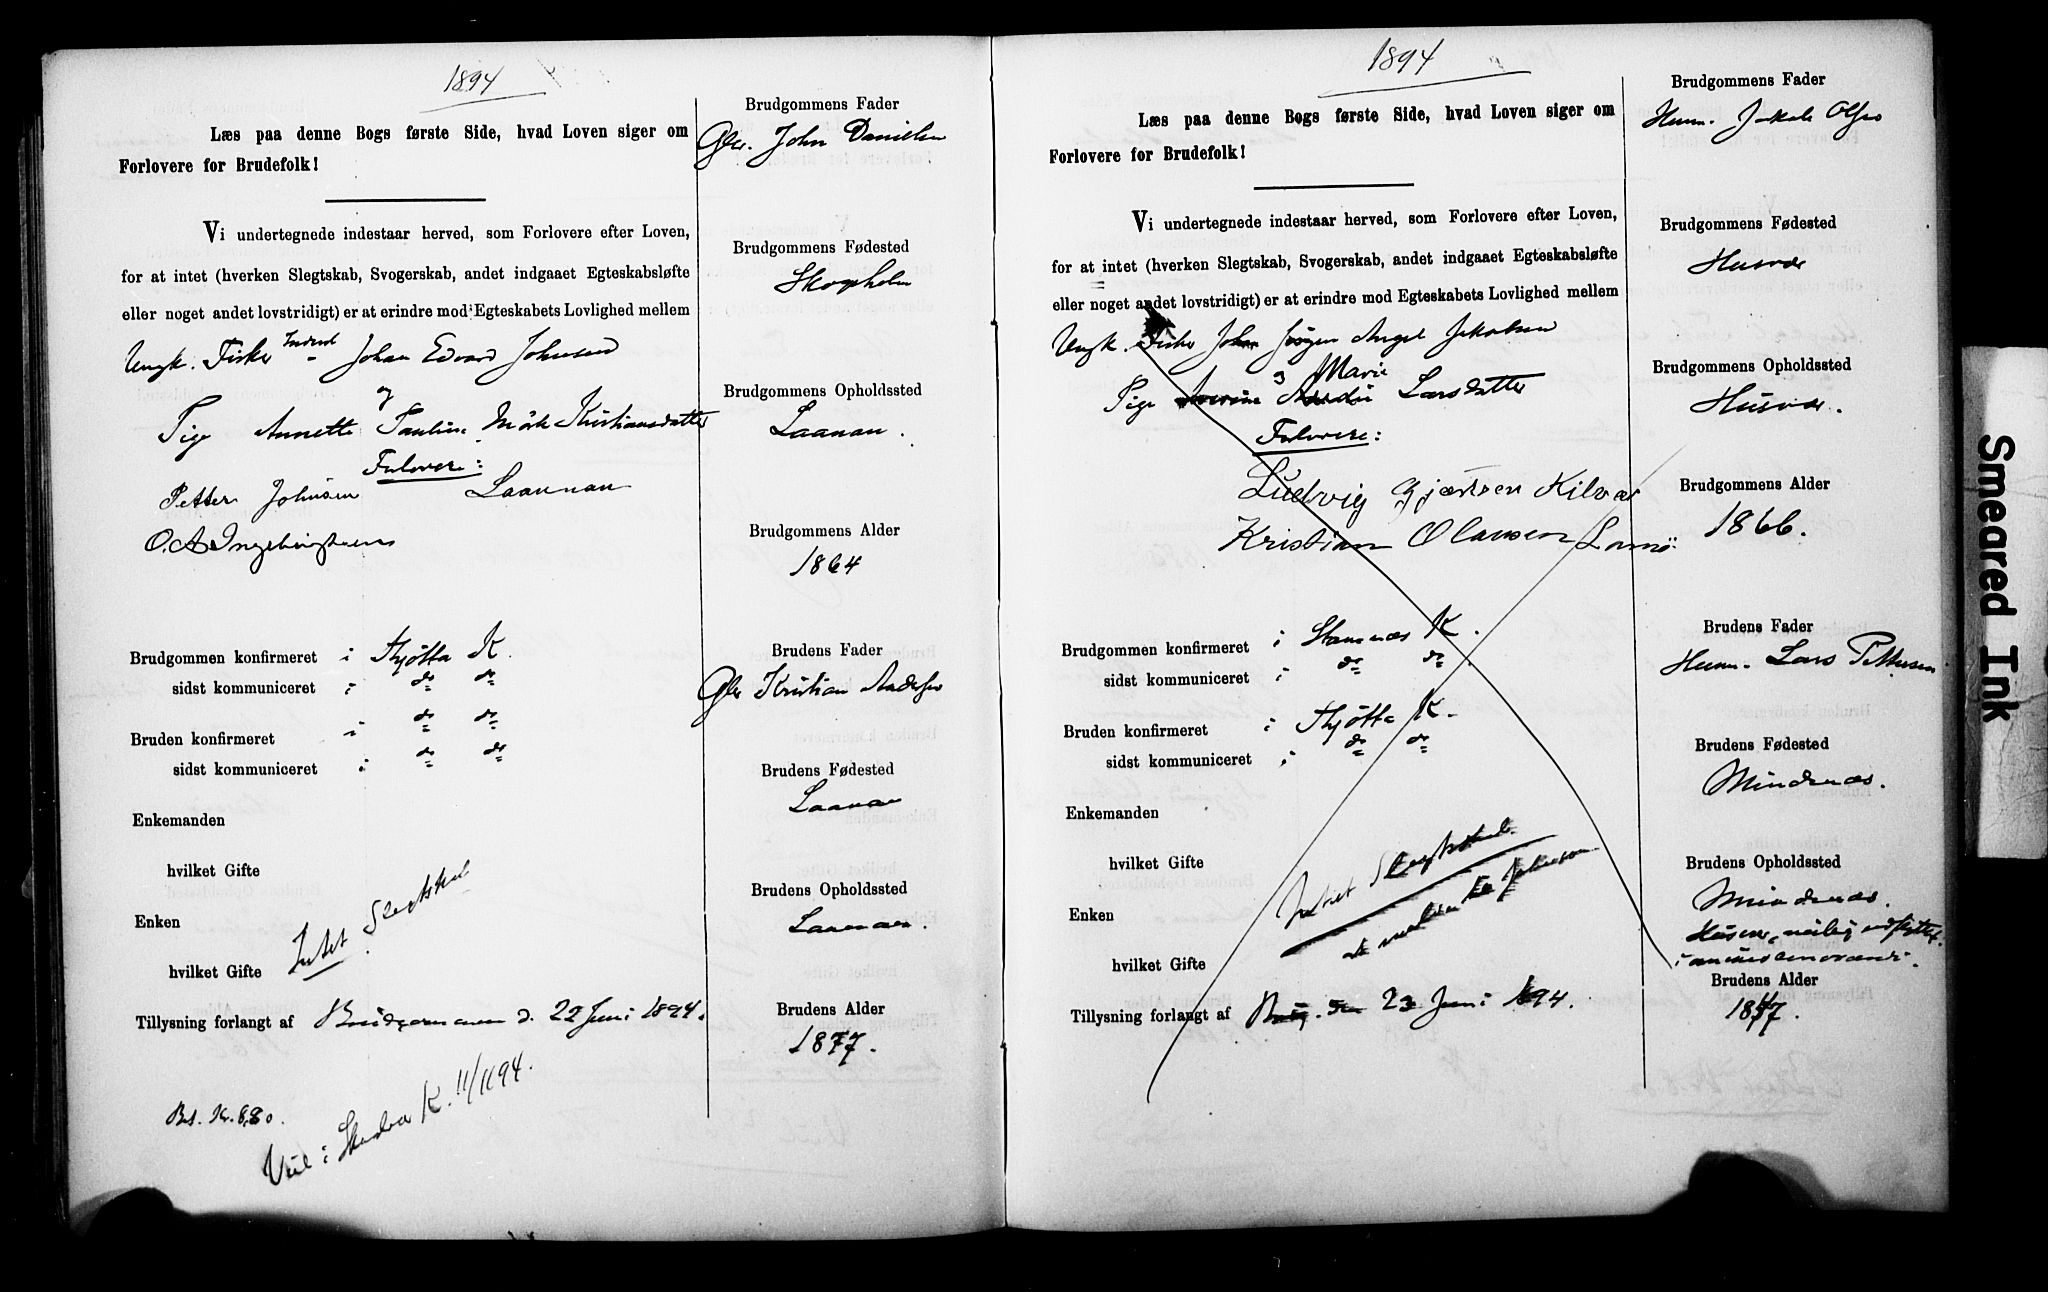 1894
Læs paa denne Bogs første Side, hvad Loven siger om
Forlovere for Brudefolk!
Vi undertegnede indestaar herved, som Forlovere efter Loven,
for at intet (hverken Slegtskab, Svogerskab, andet indgaaet Egteskabsløfte
eller noget andet lovstridigt) er at erindre mod Egteskabets Lovlighed mellem
Ungk. Fisker Inderst Johan Edvard Johnsen
og
Pige Annette Pauline Mörk Kristiansdatter
Forlovere:
Petter Johnsen Laanan
O. A. Ingebrigtsen
Brudgommen konfirmeret i Thjøtta K.
sidst kommuniceret i do do
Bruden konfirmeret i do do
sidst kommuniceret i do do
Enkemanden
hvilket Gifte
Enken
hvilket Gifte
Intet Slegtskab
Tillysning forlangt af Brudgommen d. 22 Juni 1894.
Bet. Kr. 8,80.
Viet i K. 11/11 94.
Brudgommens Fader
Gbr. John Danielsen
Brudgommens Fødested
Skogsholm
Brudgommens Opholdssted
Laanan.
Brudgommens Alder
1864
Brudens Fader
Gbr Kristian Andersen
Brudens Fødested
Laanan
Brudens Opholdssted
Laanan.
Brudens Alder
1877.
1894
Læs paa denne Bogs første Side, hvad Loven siger om
Forlovere for Brudefolk!
Vi undertegnede indestaar herved, som Forlovere efter Loven,
for at intet (hverken Slegtskab, Svogerskab, andet indgaaet Egteskabsløfte
eller noget andet lovstridigt) er at erindre mod Egteskabets Lovlighed mellem
Ungk. Fisker Johan Jørgen Angel Jakobsen
og Marie
Pige Larsdatter
Forlovere:
Ludvig Gjærtsen Kilvær
Kristian Olausen Lamö
Brudgommen konfirmeret i Stamnæs K.
sidst kommuniceret i do do
Bruden konfirmeret i Thjøtta K.
sidst kommuniceret i do do
Enkemanden
hvilket Gifte
Enken
hvilket Gifte
Intet Slegtskab
Tillysning forlangt af Brudg. den 23 Juni 1894.
Brudgommens Fader
Husm. Jakob Olsen
Brudgommens Fødested
Husvær
Brudgommens Opholdssted
Husvær.
Brudgommens Alder
1866.
Brudens Fader
Husm. Lars Pettersen
Brudens Fødested
Mindnæs.
Brudens Opholdssted
Mindnæs.
Brudens Alder
Smeared Ink